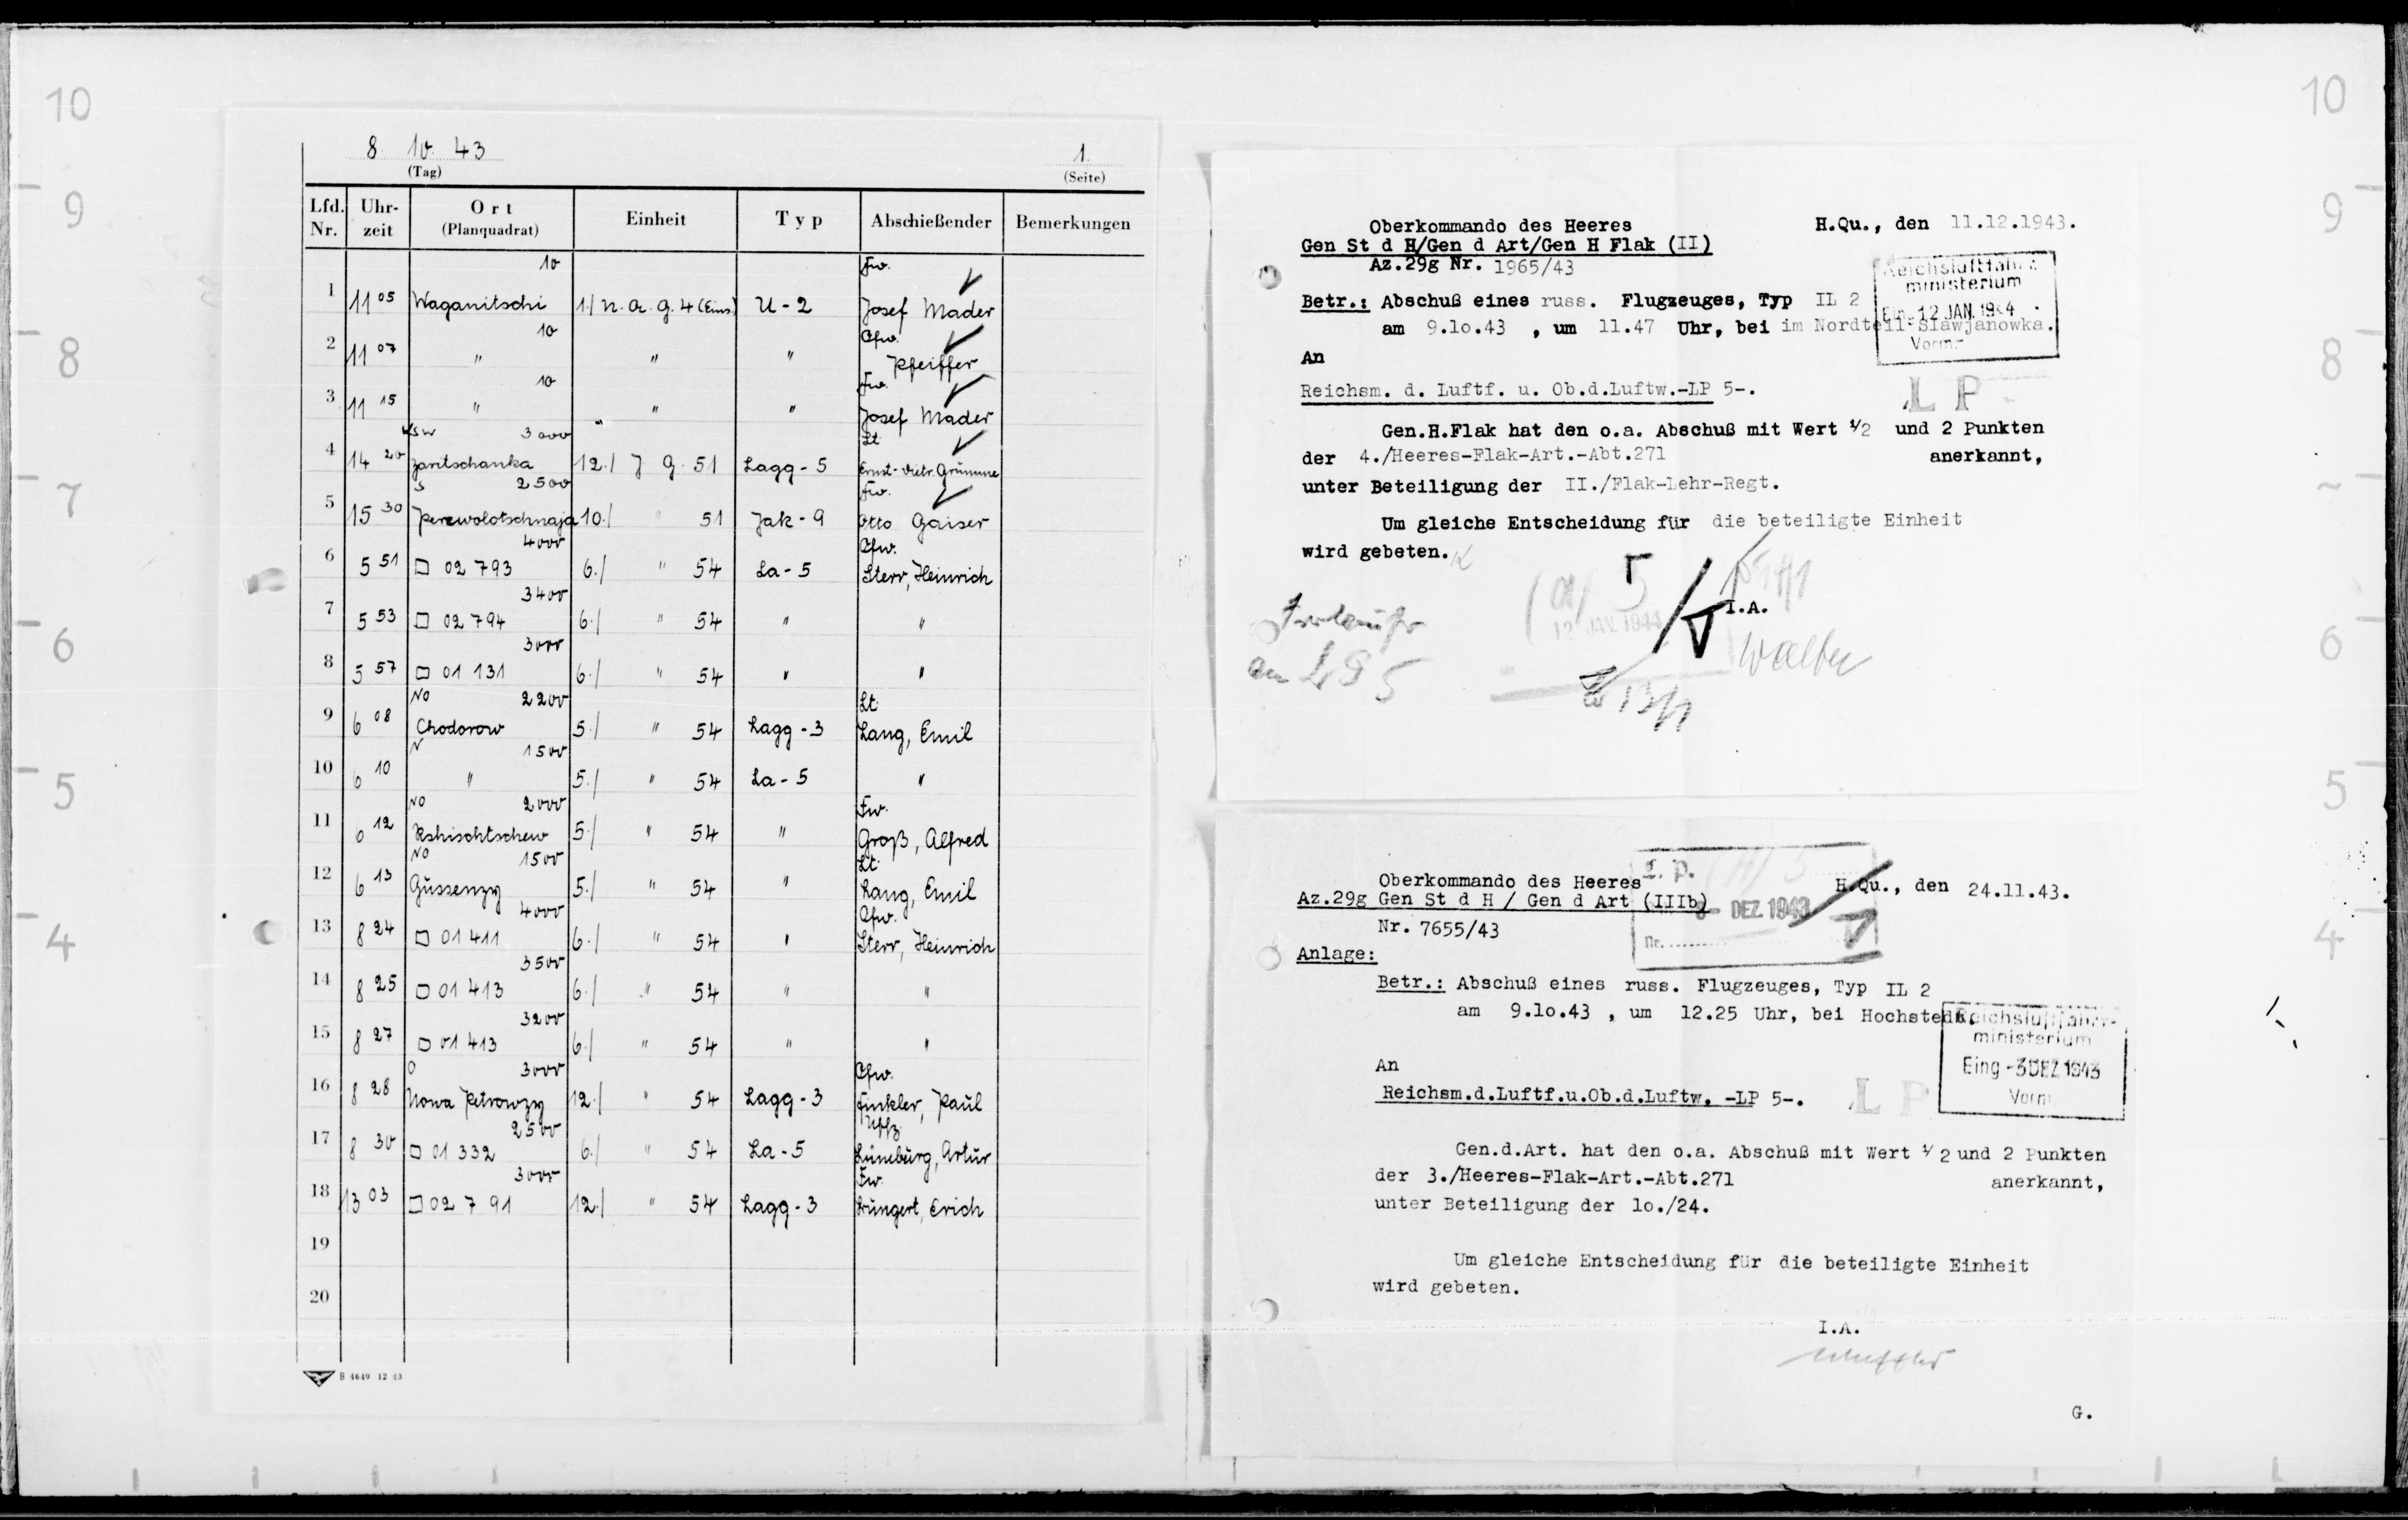 10
9
8
7
6
5
4
8. 10. 43
(Tag)
1.
(Seite)
Lfd. Nr. Uhr-zeit Ort (Planquadrat) Einheit Typ Abschießender Bemerkungen
10 Fw.
1 11 05 Waganitschi 1./ N.A.G. 4 (Eins.) U-2 Josef Mader
10 Ofw.
2 11 07 " " " Pfeiffer
10 Fw.
3 11 15 " " " Josef Mader
3000 Lt
4 14 20 Zaritschanka 12./ J G. 51 Lagg-5 Ernst-Dietr. Grümme
S 2500 Fw.
5 15 30 Perewolotschnaja 10./ " 51 Jak-9 Otto Gaiser
4000 Ofw.
6 5 51 □ 02 793 6./ " 54 La-5 Sterr, Heinrich
3400
7 5 53 □ 02 794 6./ " 54 " "
3000
8 5 57 □ 01 131 6./ " 54 " "
NO 2200 Lt.
9 6 08 Chodorow 5./ " 54 Lagg-3 Lang, Emil
N 1500
10 6 10 " 5./ " 54 La-5 "
NO 2000 Fw.
11 6 12 Rshischtschew 5./ " 54 " Groß, Alfred
NO 1500 Lt.
12 6 13 Güssenzy 5./ " 54 " Lang, Emil
4000 Ofw.
13 8 24 □ 01 411 6./ " 54 " Sterr, Heinrich
3500
14 8 25 □ 01 413 6./ " 54 " "
3200
15 8 27 □ 01 413 6./ " 54 " "
O 3000 Ofw.
16 8 28 Nowa Petrowzy 12./ " 54 Lagg-3 Finkler, Paul
2500 Uffz.
17 8 30 □ 01 332 6./ " 54 La-5 Lüneburg, Artur
3000 Fw.
18 13 03 □ 02 791 12./ " 54 Lagg-3 Büngert, Erich
19
20
B 4649 12 43
Oberkommando des Heeres H.Qu., den 11.12.1943.
Gen St d H/Gen d Art/Gen H Flak (II)
Az.29g Nr. 1965/43
Reichsluftfahrt-
ministerium
Ein. 12 JAN. 1944
Vorm.
Betr.: Abschuß eines russ. Flugzeuges, Typ IL 2
am 9.10.43 , um 11.47 Uhr, bei im Nordteil Slawjanowka.
An
Reichsm. d. Luftf. u. Ob.d.Luftw.-LP 5-.
LP
Gen.H.Flak hat den o.a. Abschuß mit Wert 1/2 und 2 Punkten
der 4./Heeres-Flak-Art.-Abt.271 anerkannt,
unter Beteiligung der II./Flak-Lehr-Regt.
Um gleiche Entscheidung für die beteiligte Einheit
wird gebeten.
I.A.
12 JAN. 1944
13/1
Oberkommando des Heeres H.Qu., den 24.11.43.
Az.29g Gen St d H / Gen d Art (IIIb)
Nr. 7655/43
L.P.
DEZ. 1943
Nr.
Anlage:
Betr.: Abschuß eines russ. Flugzeuges, Typ IL 2
am 9.10.43 , um 12.25 Uhr, bei Hochstedt.
Reichsluftfahrt-
ministerium
Eing -3 DEZ 1943
Vorm.
An
Reichsm.d.Luftf.u.Ob.d.Luftw. -LP 5-.
LP
Gen.d.Art. hat den o.a. Abschuß mit Wert 1/2 und 2 Punkten
der 3./Heeres-Flak-Art.-Abt.271 anerkannt,
unter Beteiligung der 10./24.
Um gleiche Entscheidung für die beteiligte Einheit
wird gebeten.
I.A.
G.
10
9
8
6
5
4